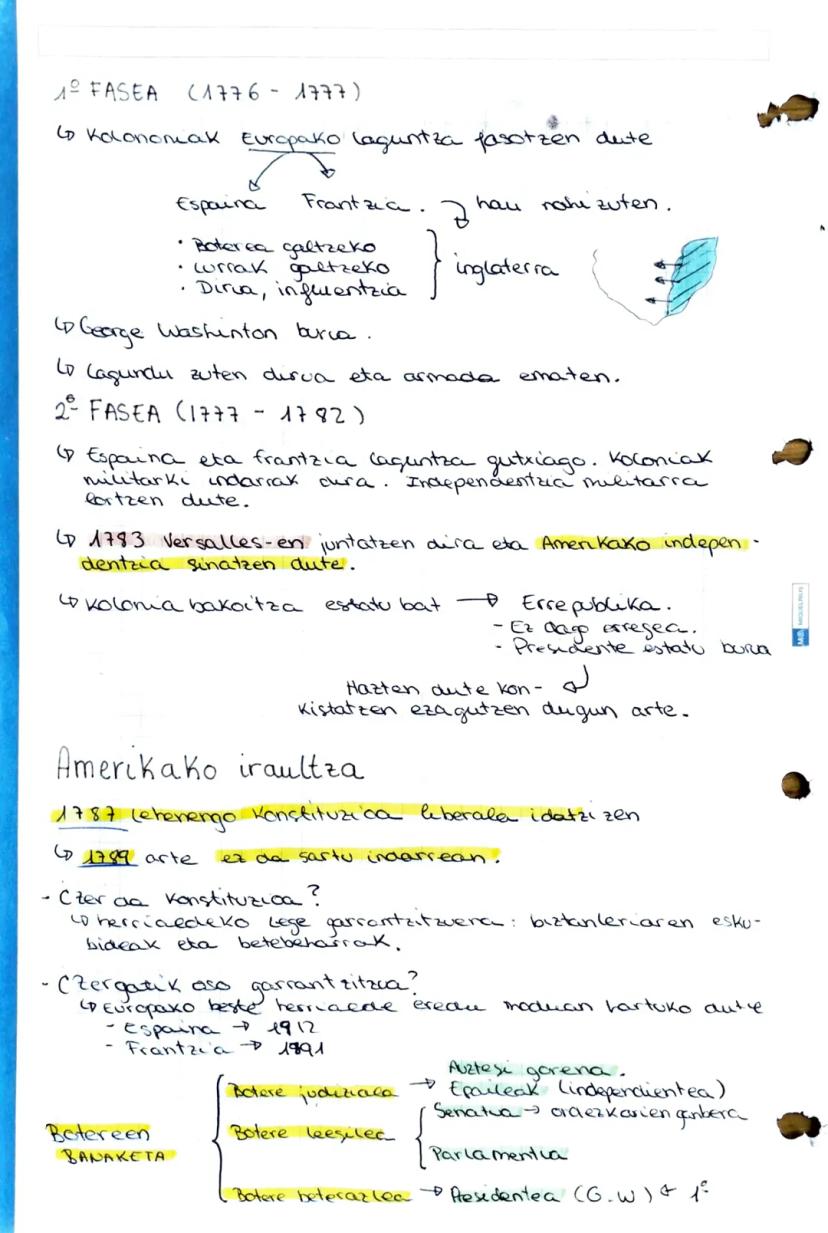 1º FASEA (1776 - 1777)
↳ Kolononiak Europako laguntza jasotzen dute
Espaina Frantzia. hau nahi zuten.
· Boterea galtzeko
· Lurrak galtzeko
· Dirua, influentzia
inglaterra
↳ George Washinton burua.
↳ Lagundu zuten dirua eta armada ematen.
2º FASEA (1777 - 1782)
↳ Espaina eta frantzia laguntza gutxiago. Koloniak
militarki indarrak dira. Independentzia militarra
lortzen dute.
↳ 1783 Versalles-en juntatzen dira eta Amerikako indepen-
dentzia sinatzen dute.
↳ Kolonia bakoitza estatu bat → Errepublika.
- Ez dago erregea.
- Presidente estatu burua
Hazten dute kon-
kistatzen ezagutzen dugun arte.
MIQUELRIUS
Amerikako iraultza
1787 lehenengo Konstituzioa liberala idatzi zen
↳ 1789 arte ez da sartu indarrean.
- Czer da Konstituzioa?
↳ herrialdeko lege garrantzitzuena: biztanleriaren esku-
bideak eta betebeharrak.
- Czergatik oso garrantzitzua?
↳ Europako beste herrialde eredu moduan hartuko dute
- Espaina → 1912
- Frantzia → 1891
Auztegi gorena.
Botere judiziala → Epaileak (independientea)
Senatua → ordezkarien ganbera
Botereen
BANAKETA
Botere leegilea
Parlamentua
Botere beterazlea → Presidentea (G.W) ← 1º